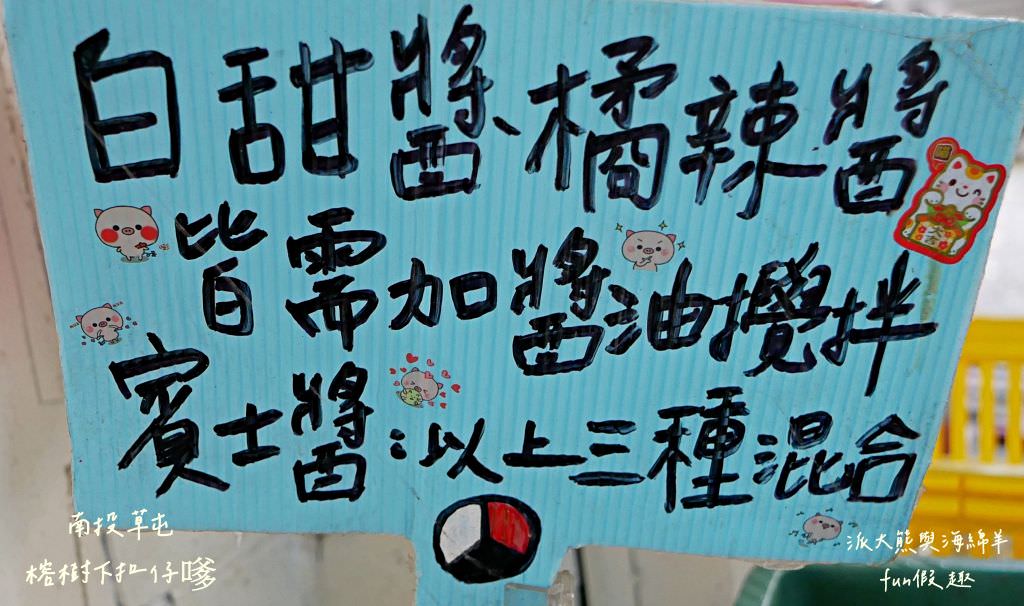 白甜醬、橘辣醬
皆需加醬油攪拌
賓士醬:以上三種混合
南投草屯
榕樹下扣仔嗲
派大熊與海綿羊
fun假趣